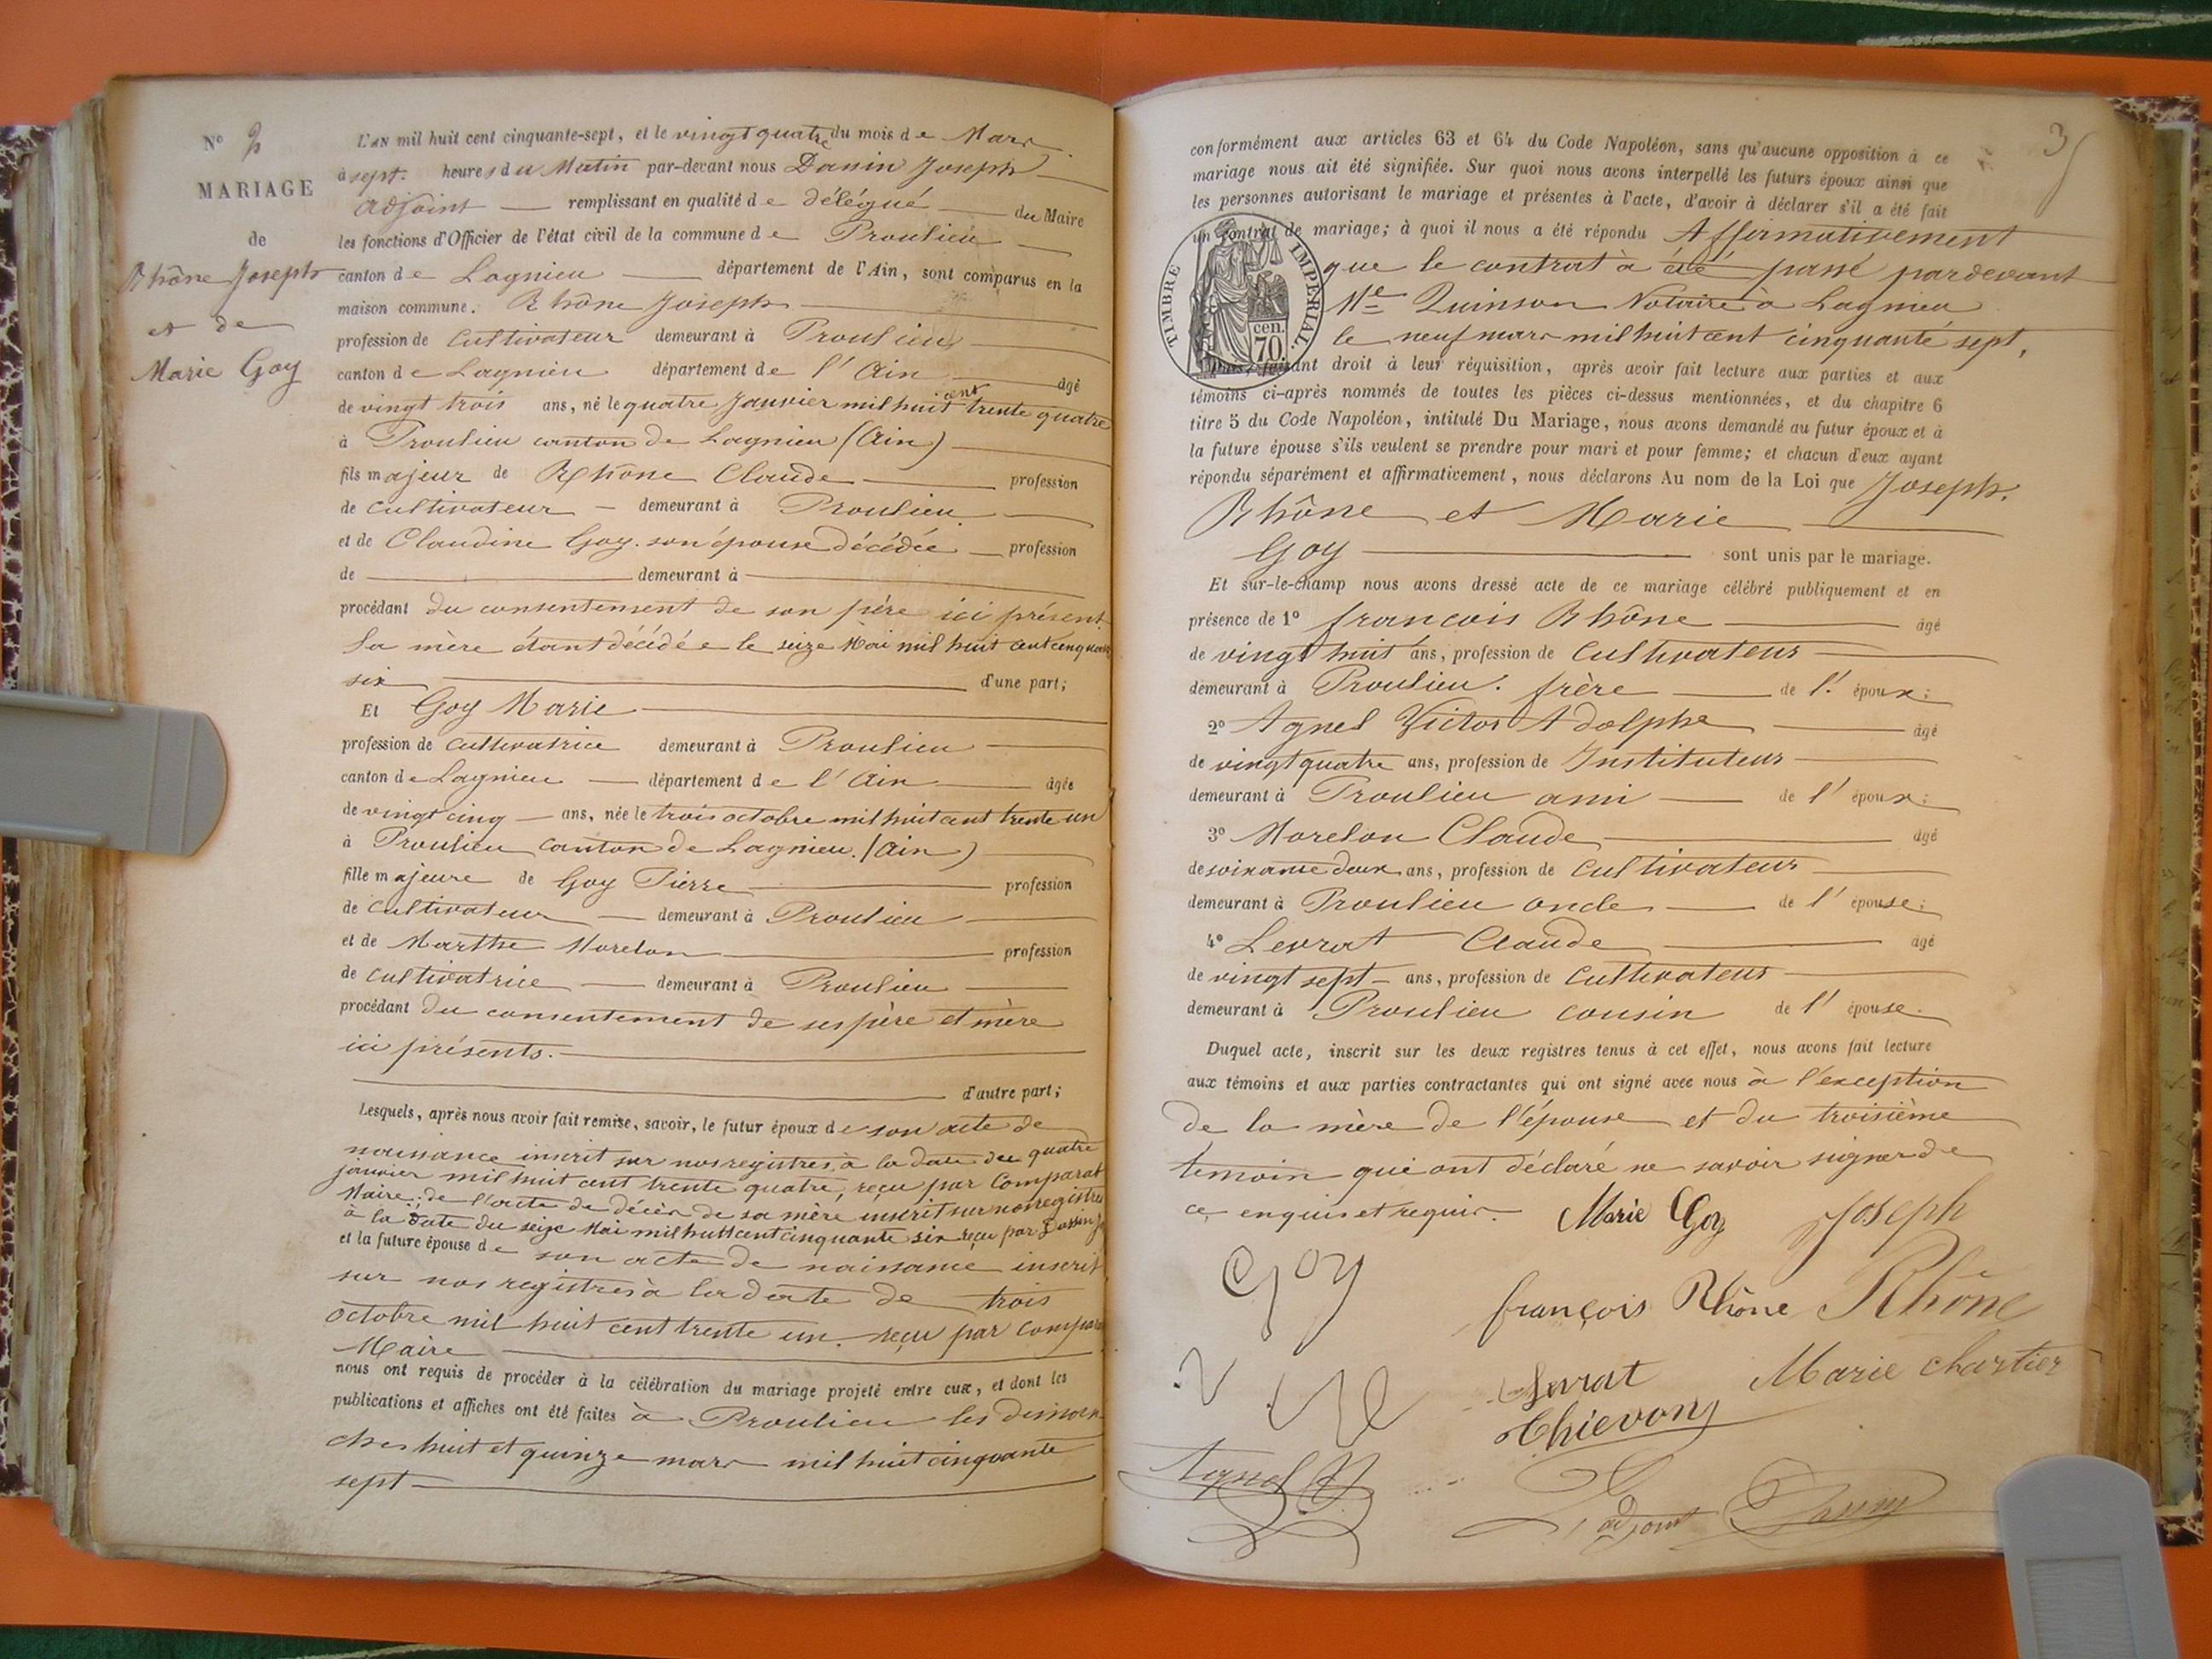 N° 2
MARIAGE
de
Rhône Joseph
et de
Marie Goy
L'AN mil huit cent cinquante-sept, et le vingt quatre du mois de Mars
à sept heures du Matin par-devant nous Dassin Joseph
adjoint remplissant en qualité de délégué du Maire
les fonctions d'Officier de l'état civil de la commune de Proulieu
canton de Lagnieu département de l'Ain, sont comparus en la
maison commune. Rhône Joseph
profession de Cultivateur demeurant à Proulieu
canton de Lagnieu département de l'Ain âgé
de vingt trois ans, né le quatre Janvier mil huit cent trente quatre
à Proulieu canton de Lagnieu (Ain)
fils majeur de Rhône Claude profession
de cultivateur demeurant à Proulieu
et de Claudine Goy son épouse décédée profession
de demeurant à
procédant du consentement de son père ici présent
Sa mère étant décédée le seize Mai mil huit cent cinquante
six d'une part;
Et Goy Marie
profession de cultivatrice demeurant à Proulieu
canton de Lagnieu département de l'Ain âgée
de vingt cinq ans, née le trois octobre mil huit cent trente un
à Proulieu canton de Lagnieu (Ain)
fille majeure de Goy Pierre profession
de cultivateur demeurant à Proulieu
et de Marthe Morelon profession
de cultivatrice demeurant à Proulieu
procédant du consentement de ses père et mère
ici présents.
d'autre part;
Lesquels, après nous avoir fait remise, savoir, le futur époux de son acte de
naissance inscrit sur nos registres à la date du quatre
janvier mil huit cent trente quatre, reçu par Comparat
Maire; de l'acte de décès de sa mère inscrit sur nos registres
à la date du seize Mai mil huit cent cinquante six reçu par Dassin
et la future épouse de son acte de naissance inscrit
sur nos registres à la date de trois
octobre mil huit cent trente un reçu par Comparat
Maire
nous ont requis de procéder à la célébration du mariage projeté entre eux, et dont les
publications et affiches ont été faites à Proulieu les diman
ches huit et quinze mars mil huit cinquante
sept
3
conformément aux articles 63 et 64 du Code Napoléon, sans qu'aucune opposition à ce
mariage nous ait été signifiée. Sur quoi nous avons interpellé les futurs époux ainsi que
les personnes autorisant le mariage et présentes à l'acte, d'avoir à déclarer s'il a été fait
un contrat de mariage; à quoi il nous a été répondu Affirmativement
que le contrat à été passé pardevant
Me Quinson Notaire à Lagnieu
le neuf mars mil huit cent cinquante sept,
TIMBRE IMPERIAL.
cen.
70
Puis, faisant droit à leur réquisition, après avoir fait lecture aux parties et aux
témoins ci-après nommés de toutes les pièces ci-dessus mentionnées, et du chapitre 6
titre 5 du Code Napoléon, intitulé Du Mariage, nous avons demandé au futur époux et à
la future épouse s'ils veulent se prendre pour mari et pour femme; et chacun d'eux ayant
répondu séparément et affirmativement, nous déclarons Au nom de la Loi que Joseph
Rhône et Marie
Goy sont unis par le mariage.
Et sur-le-champ nous avons dressé acte de ce mariage célébré publiquement et en
présence de 1° françois Rhône âgé
de vingt huit ans, profession de Cultivateur
demeurant à Proulieu. frère de l' époux;
2° Agnel Victor Adolphe âgé
de vingt quatre ans, profession de Instituteur
demeurant à Proulieu ami de l' époux;
3° Morelon Claude âgé
de soixante deux ans, profession de Cultivateur
demeurant à Proulieu oncle de l' épouse;
4° Levrat Claude âgé
de vingt sept ans, profession de Cultivateur
demeurant à Proulieu cousin de l' épouse.
Duquel acte, inscrit sur les deux registres tenus à cet effet, nous avons fait lecture
aux témoins et aux parties contractantes qui ont signé avec nous à l'exception
de la mère de l'épouse et du troisième
témoin qui ont déclaré ne savoir signer de
ce enquis et requis. Marie Goy Joseph
Goy
françois Rhône Rhône
Levrat Marie chartier
Thievon
Agnel
L'adjoint Dassin